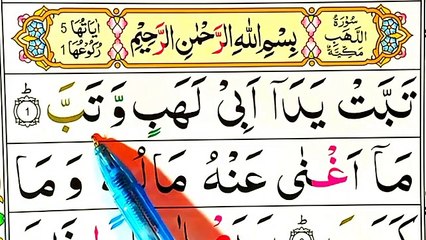 سُوْرَةُ اللَّهَبِ مَكِّيَّةٌ
بِسْمِ اللّٰهِ الرَّحْمٰنِ الرَّحِيْمِ
اٰيَاتُهَا 5 رُكُوْعُهَا 1
تَبَّتْ يَدَاۤ اَبِىْ لَهَبٍ وَّتَبَّ ؕ ١
مَاۤ اَغْنٰى عَنْهُ مَالُهٗ وَمَا